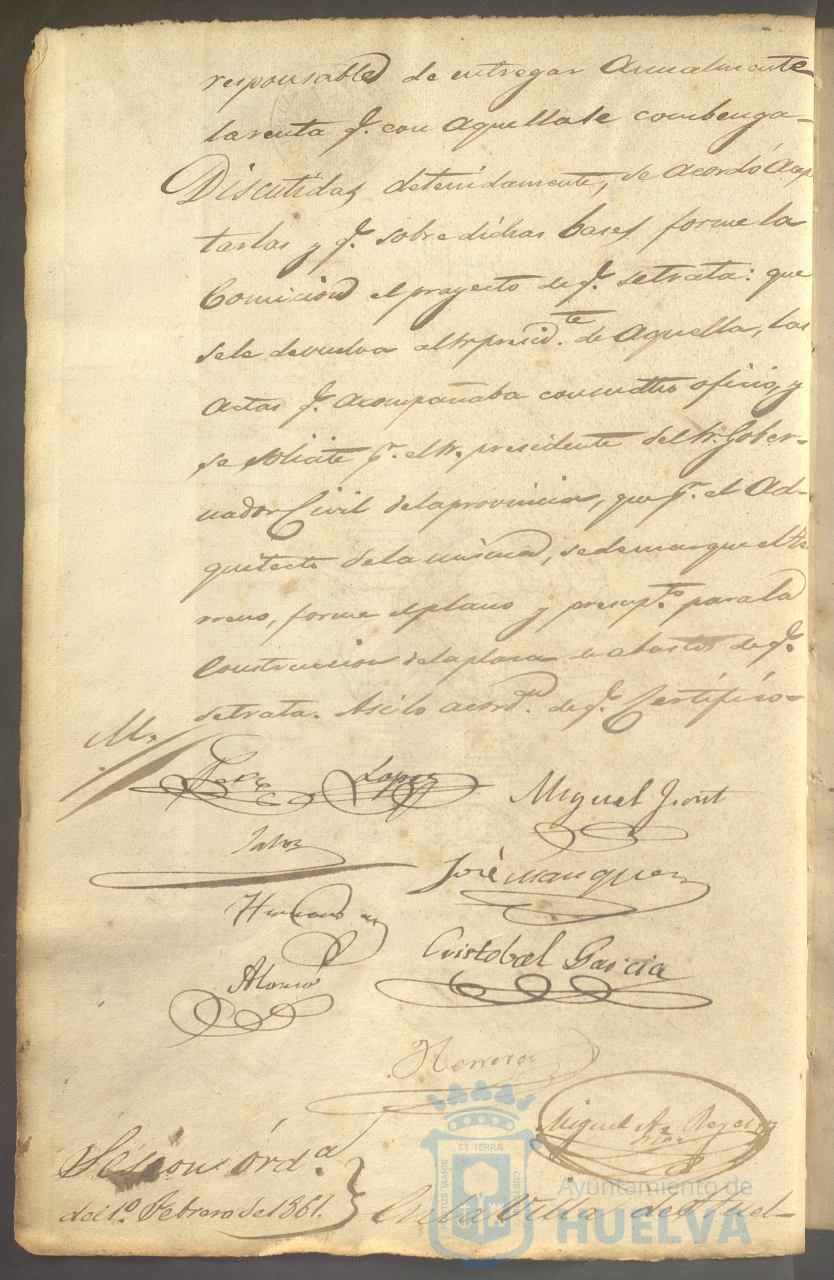 responsable de entregar Anualmente
la renta q.e con Aquella se combenga-
Discutidas detenidamente, se acordó Acep
tarlas y q.e sobre dichas bases forme la
Comicion el proyecto de q.e se trata: que
sele devuelva al Sr presid.te de Aquella, las
Actas q.e Acompañaba con su oficio, y
se solicite p.r el Sr. presidente del Sr. Gober-
nador Civil dela provincia, que p.r el Ad-
quitecto dela misma, se demarque el te
rreno, forme el plano y presup.to para la
Construccion dela plaza de abastos de q.e
se trata. Asi lo acord.on de q.e Certifico-
Lopez
Miguel
José Marquez
Hernandez
Cristobal Garcia
Alonso
Herrera
Miguel Reyes
Session órd.a
del 1.o Febrero de 1861. } En la Villa de Huel-
ET TERRÆ
PORTUS MARIS
CUSTODIA
Ayuntamiento de
HUELVA